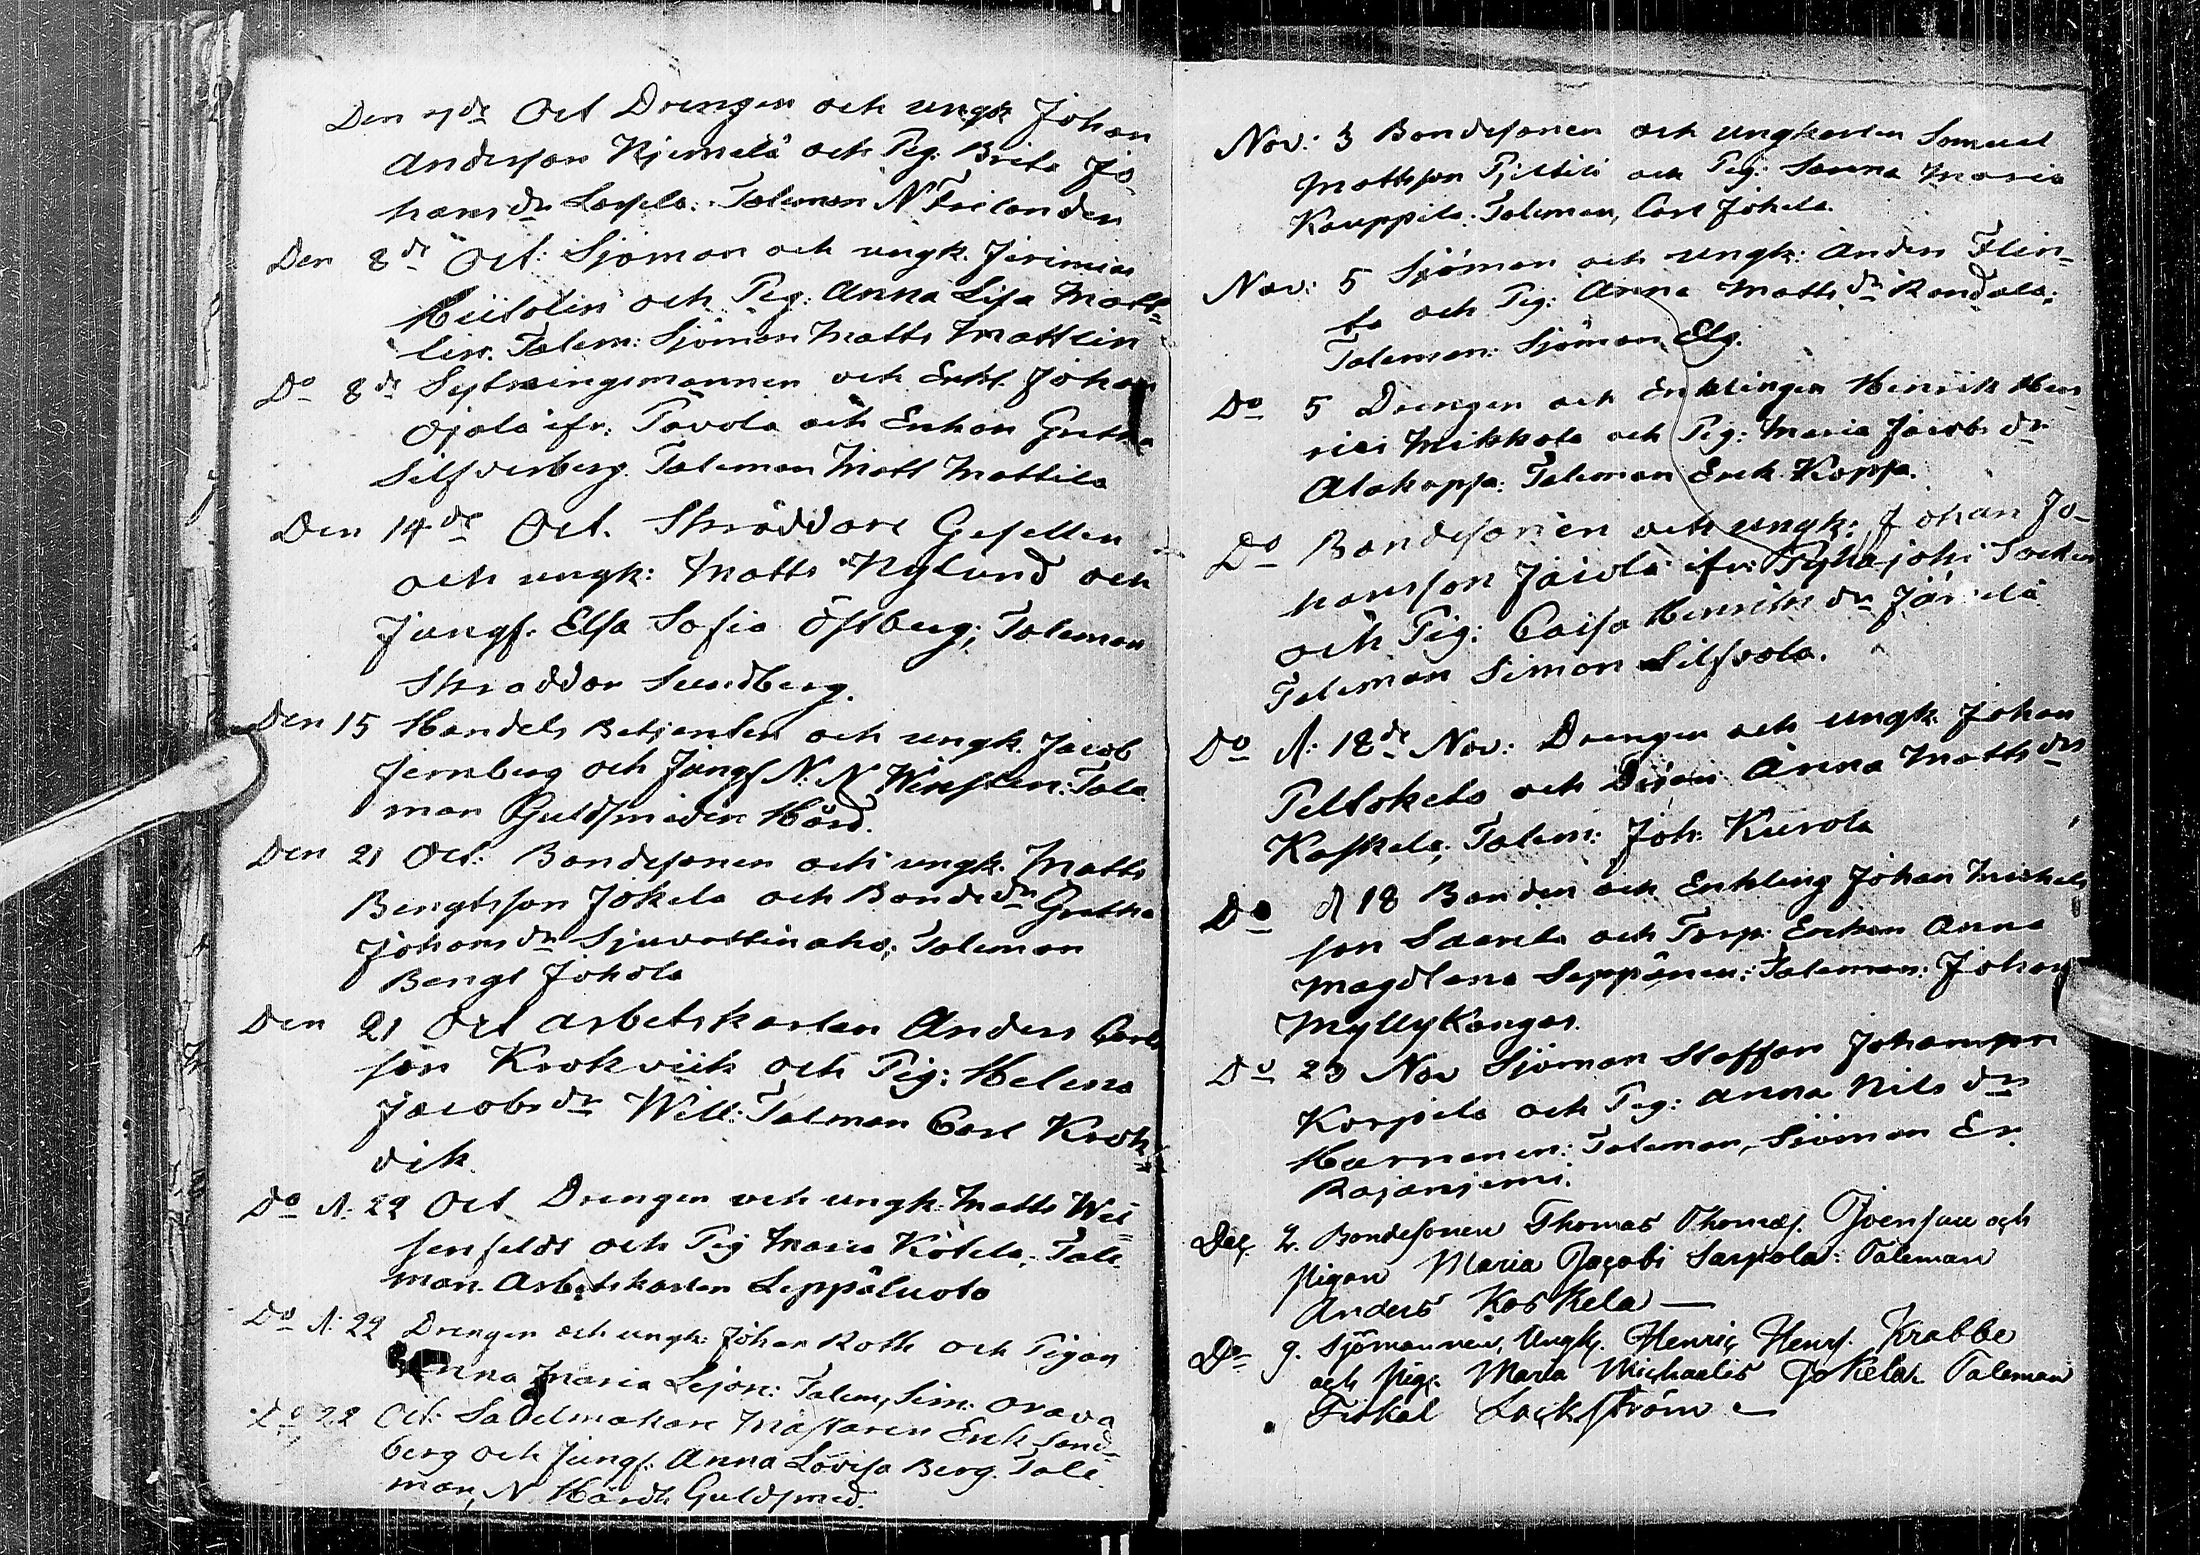 Den 7de Oct Drengen och ungk Johan
Andersson Kjemelä och Pig. Brita Jo-
hans dr Lassila. Taleman N Frilander
Den 8de Oct: Sjöman och ungk. Jerimias
Hiitolin och Pig: Anna Lisa Matt=
lin. Talem: Sjöman Matts Mattlin
Do 8de Sytningsmannen och Enkl. Johan
Ojala ifr: Pavola och Enkan Gretha
Silfverberg. Taleman Matt Mattila
Den 14de Oct. Skräddare Gesellen
och ungk: Matts Nylund och
Jungf. Elsa Sofia Östberg; Taleman
Skraddar Sundberg.
Den 15 Handels Betjenten och ungk. Jacob
Jernberg och Jungf N. N. Wirsten: Tale
man Guldsmeden Hård.
Den 21 Oct: Bondesonen och ungk. Matts
Bengtsson Jokela och Bonde dr Gretha
Johans dr Sjuvattinaho; Taleman
Bengt Jokela
Den 21 Oct arbetskarlen Anders Carls
son Krokviik och Pig: Helena
Jacobs dr Will: Talman Carl Krok=
vik.
Do d: 22 Oct Drengen och ungk: Matts Wei=
senfeldt och Pig Maria Kotila, Tale
man Arbetskarlen Leppäluoto
Do d: 22 Drengen och ungk: Johan Roth och Pigan
Anna Maria Lejon: Talem, Sim. Orava
Do 22 Oct: Sadelmakare Mästaren Erik Sand=
berg och Jungf. Anna Lovisa Berg. Tale
man, N Hårdh Guldsmed.
Nov: 3 Bondesonen och ungkarlen Samuel
Mattsson Pjettili och Pig: Sanna Maria
Kauppila. Taleman, Carl Jokela.
Nov: 5 Sjöman och ungk: Anders Flin-
ta och Pig: Anna Matts dr Randala;
Taleman: Sjöman Elg.
Do 5 Drengen och Enklingen Henrik Hen-
rici Mikkola och Pig: Maria Jacobs dr
Alakopsa: Taleman Erik Kopsa.
Do Bondesonen och ungk: Johan Jo-
hansson Jaiola ifr: Pyhäjoki Socken
och Pig: Caisa Henriks dr Järvelä
Taleman Simon Silfvola.
Do d: 18de Nov: Drengen och ungk. Johan
Peltokela och Pigan Anna Matts dr
Koskela; Talem: Joh: Kurola
Do d 18 Bonden och Enkling Johan Mickels
son Saarela och Torp. Enkan Anna
Magdlena Seppänen: Taleman: Johan
Myllykangas.
Do 23 Nov Sjöman Staffan Johansson
Korpela och Pig: Anna Nils dr
Harnanen: Taleman, Sjöman Er.
Rajaniemi.
Dec 2. Bondesonen Thomas Thomæs. Joensuu och
pigan Maria Jacobi Sarpola: Taleman
Anders Koskela —
Do 9. Sjömannen, Ungk. Henric Henrs. Krabbe
och pig. Maria Michaelis Jokela Taleman
Fiskal Lackström —